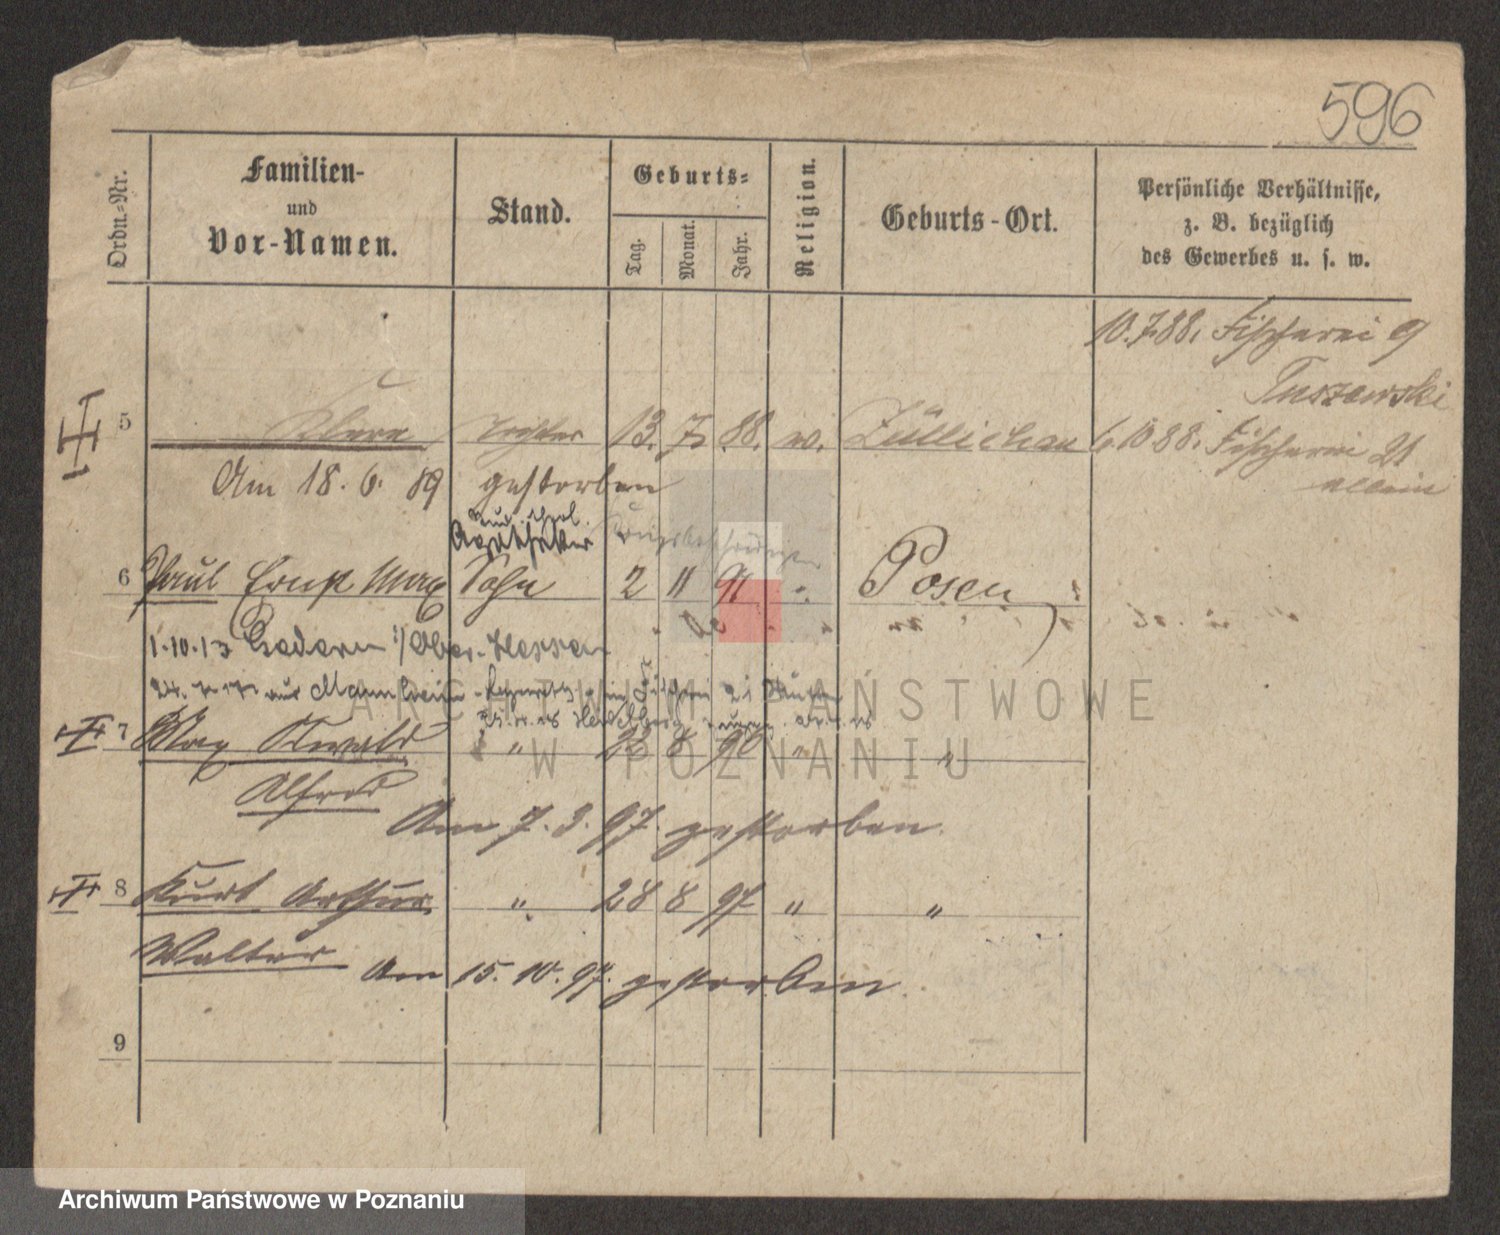 596
Ordn.-Nr.
Familien-
und
Vor-Namen.
Stand.
Geburts-
Tag.
Monat.
Jahr.
Religion.
Geburts-Ort.
Persönliche Verhältnisse,
z. B. bezüglich
des Gewerbes u. s. w.
10.7.88. Fischerei 9
Tuszewski
5 Klara Tochter 13. 7. 88. w. Züllichau 6.10 88. Fischerei 21
allein
Am 18. 6. 89 gestorben
Apotheker
6 Paul Ernst Max Sohn 2 11 91 " Posen
1.10.13 i/Ober-Hessen
7 Max Ewald " 28 8 90 " "
Alfred
Am 7. 3. 97. gestorben.
8 Kurt Arthur " 28 8 97 " "
Walter Am 15. 10. 97. gestorben.
9
ARCHIWUM PAŃSTWOWE
W POZNANIU
Archiwum Państwowe w Poznaniu